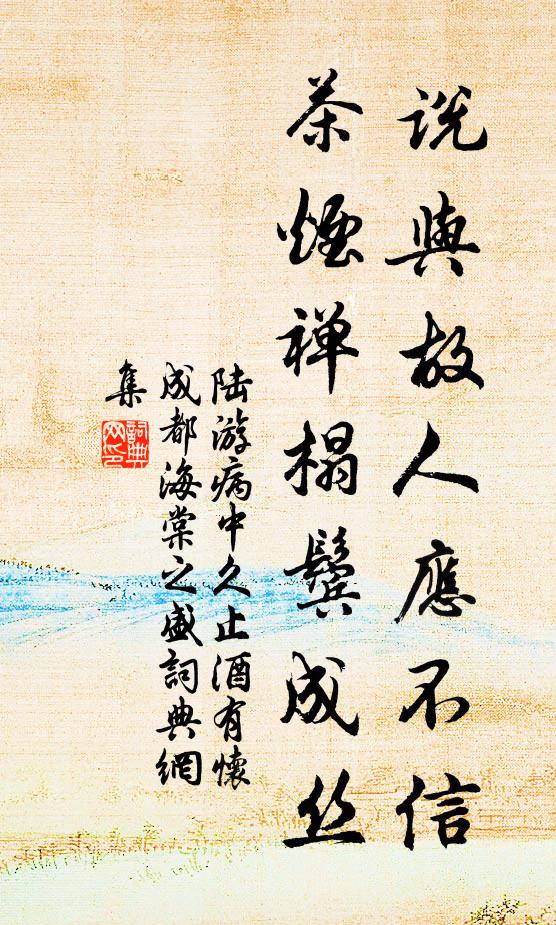 說與故人應不信
茶煙禅榻鬢成丝
陆游病中久止酒有懷
成都海棠之盛詞典網
集
詞典
网印